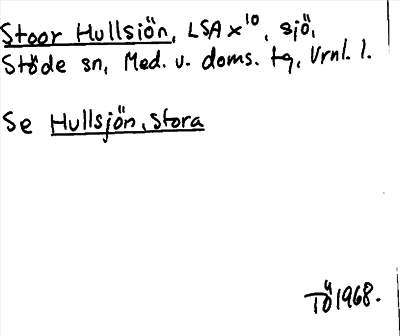 Stoor Hullsiön, LSA x¹⁰, sjö,
Stöde sn, Med. v. doms. tg, Vrnl. l.
Se Hullsjön, Stora
TÖ 1968.